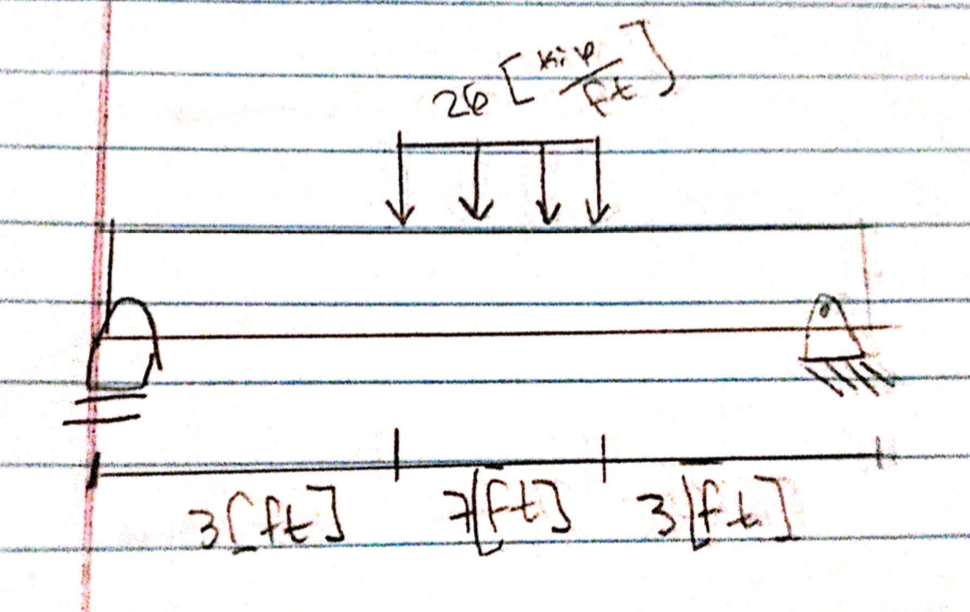 26 [kip/ft]
3[ft] 7[ft] 3[ft]